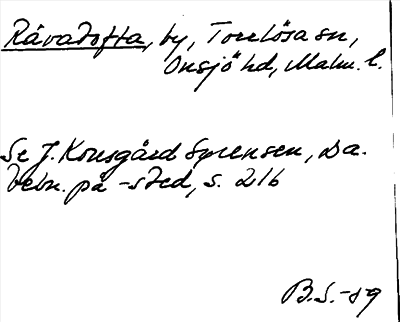 Råvadofta, by, Torrlösa sn,
Onsjö hd, Malm. l.
Se J. Kousgård Sørensen, Da.
bebn. på -sted, s. 216
B.S. -59